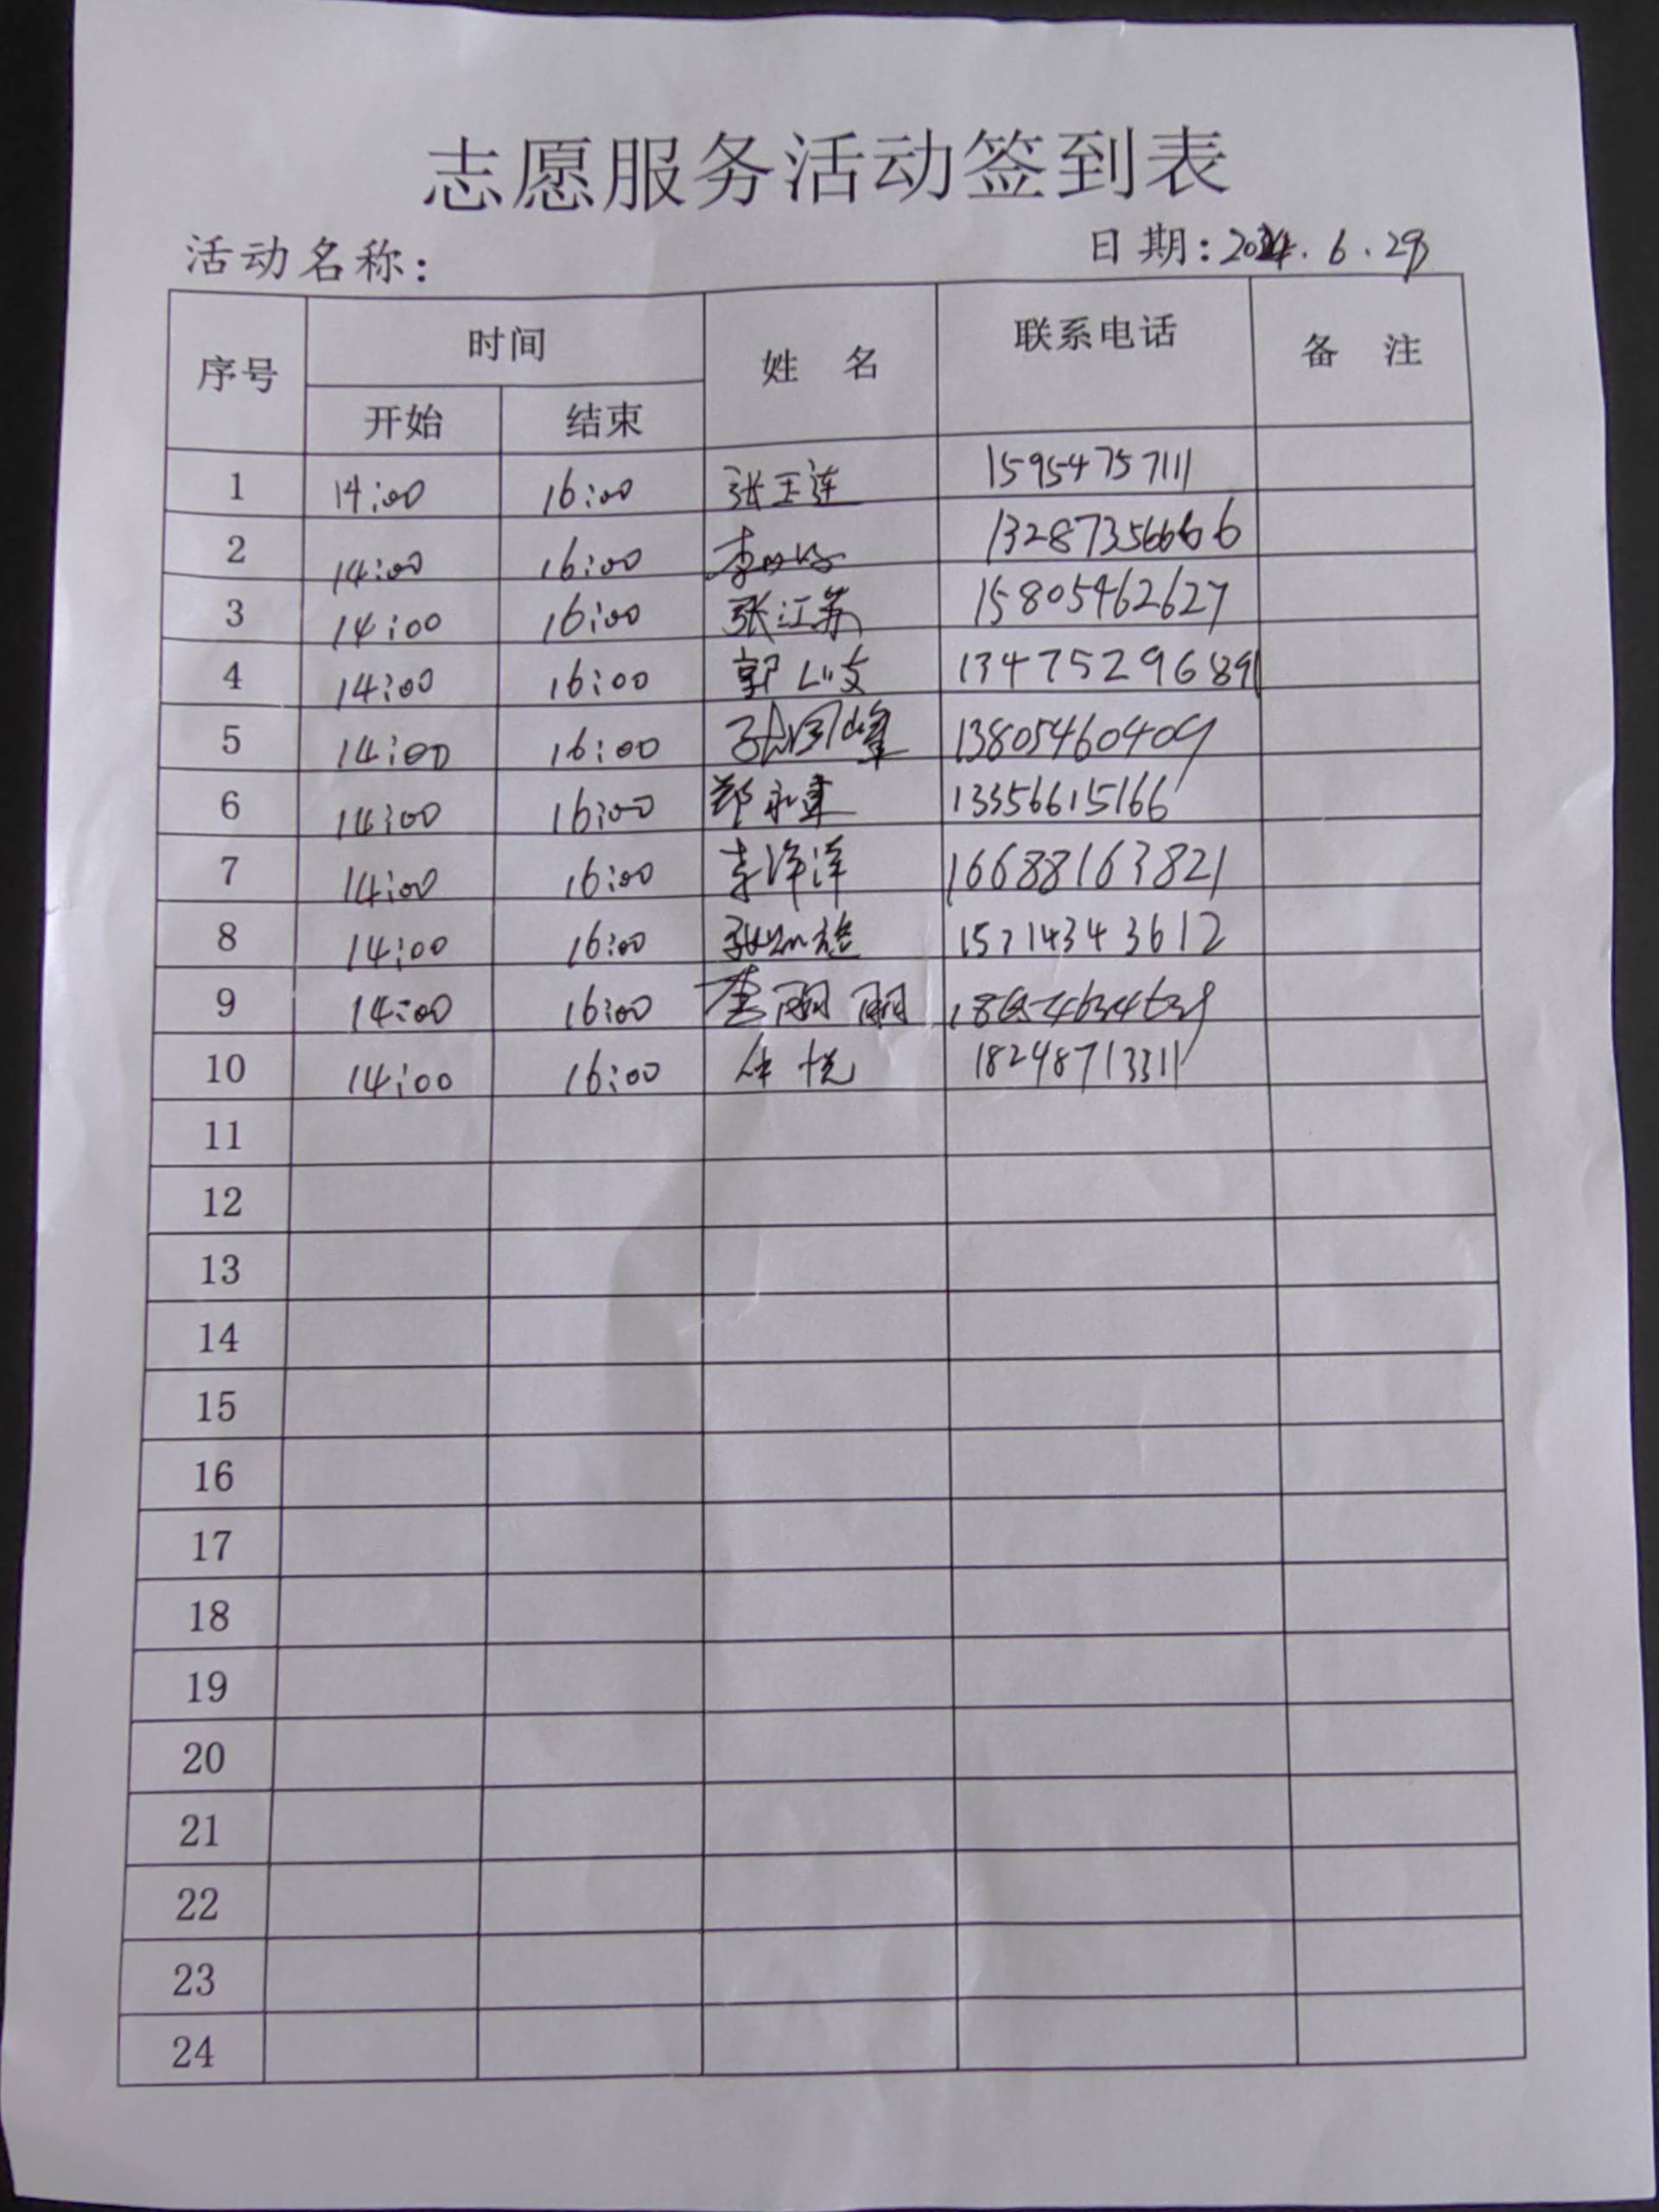 志愿服务活动签到表
活动名称: 日期:2024.6.29
序号 时间 姓 名 联系电话 备 注
开始 结束
1 14:00 16:00 张玉莲 15954757111
2 14:00 16:00 李 13287356666
3 14:00 16:00 张江苏 15805462627
4 14:00 16:00 郭 13475296891
5 14:00 16:00 峰 13805460409
6 14:00 16:00 郑永军 13356615166
7 14:00 16:00 李洋洋 16688163821
8 14:00 16:00 张 15714343612
9 14:00 16:00 李丽丽
10 14:00 16:00 任悦 18248713311
11
12
13
14
15
16
17
18
19
20
21
22
23
24